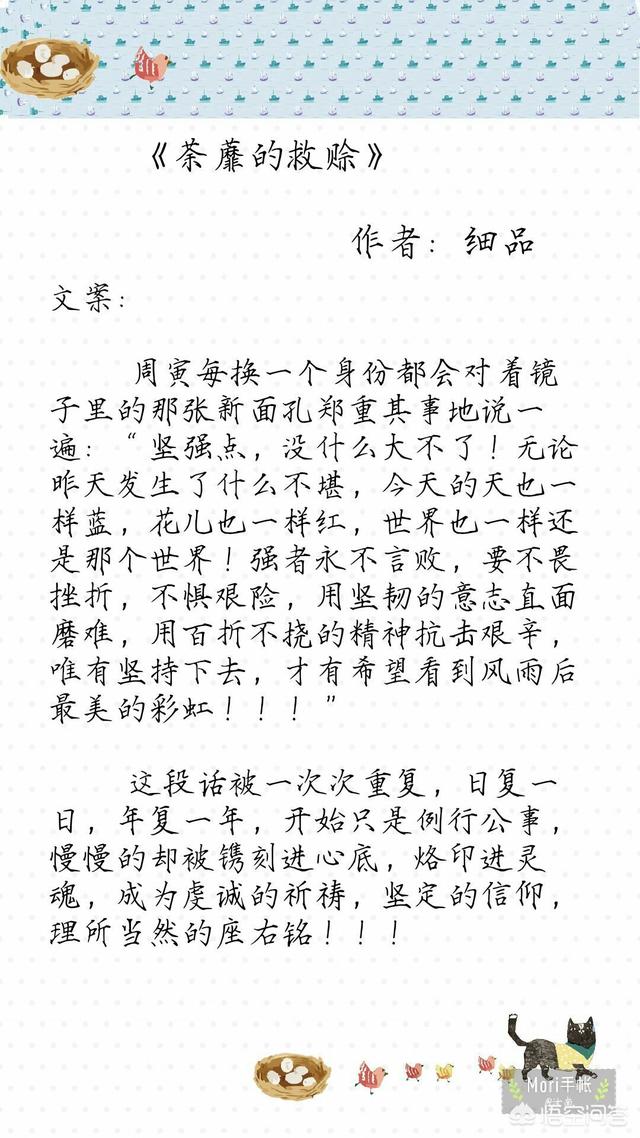 《荼蘼的救赎》
作者：细品
文案：
周寅每换一个身份都会对着镜
子里的那张新面孔郑重其事地说一
遍：“坚强点，没什么大不了！无论
昨天发生了什么不堪，今天的天也一
样蓝，花儿也一样红，世界也一样还
是那个世界！强者永不言败，要不畏
挫折，不惧艰险，用坚韧的意志直面
磨难，用百折不挠的精神抗击艰辛，
唯有坚持下去，才有希望看到风雨后
最美的彩虹！！！”
这段话被一次次重复，日复一
日，年复一年，开始只是例行公事，
慢慢的却被镌刻进心底，烙印进灵
魂，成为虔诚的祈祷，坚定的信仰，
理所当然的座右铭！！！
Mori手帐
悟空问答